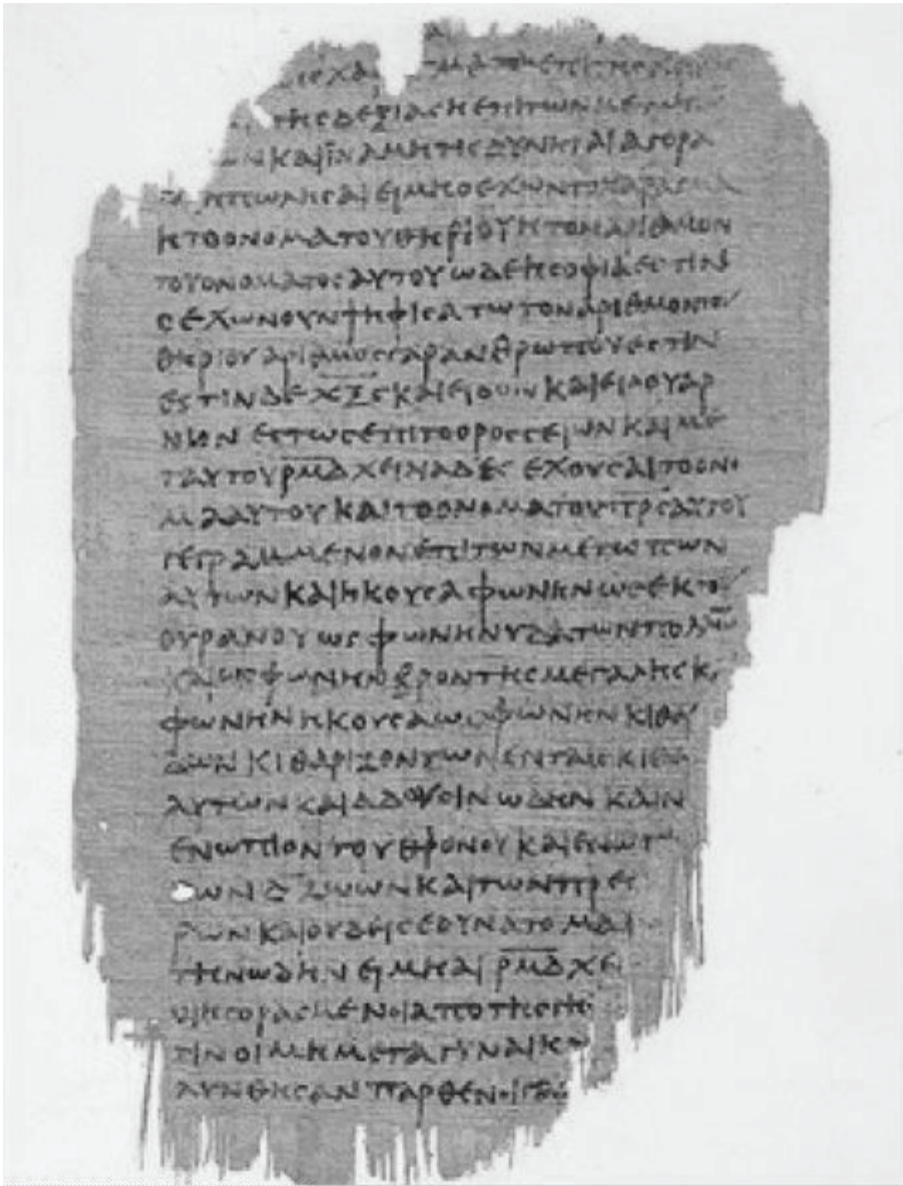 ΜΑΤΑ ΕΠΙ ΤΗϹ
ΤΗϹ ΔΕΞΙΑϹ Η ΕΠΙ ΤΩΝ
ΩΝ ΚΑΙ ΙΝΑ ΜΗ ΤΙϹ ΔΥΝΗΤΑΙ ΑΓΟΡΑ
Η ΠΩΛΗϹΑΙ ΕΙ ΜΗ Ο ΕΧΩΝ ΤΟ ΧΑΡΑΓΜΑ
Η ΤΟ ΟΝΟΜΑ ΤΟΥ ΘΗΡΙΟΥ Η ΤΟΝ ΑΡΙΘΜΟΝ
ΤΟΥ ΟΝΟΜΑΤΟϹ ΑΥΤΟΥ ΩΔΕ Η ϹΟΦΙΑ ΕϹΤΙΝ
Ο ΕΧΩΝ ΟΥΝ ΨΗΦΙϹΑΤΩ ΤΟΝ ΑΡΙΘΜΟΝ ΤΟΥ
ΘΗΡΙΟΥ ΑΡΙΘΜΟϹ ΓΑΡ ΑΝΘΡΩΠΟΥ ΕϹΤΙΝ
ΕϹΤΙΝ ΔΕ Χ̅Ξ̅Ϛ̅ ΚΑΙ ΕΙΔΟΝ ΚΑΙ ΕΙΔΟΥ ΑΡ
ΝΙΟΝ ΕϹΤΩϹ ΕΠΙ ΤΟ ΟΡΟϹ ϹΕΙΩΝ ΚΑΙ ΜΕ
Τ ΑΥΤΟΥ Ρ̅Μ̅Δ̅ ΧΕΙΛΙΑΔΕϹ ΕΧΟΥϹΑΙ ΤΟ ΟΝΟ
ΜΑ ΑΥΤΟΥ ΚΑΙ ΤΟ ΟΝΟΜΑ ΤΟΥ Π̅Ρ̅Ϲ̅ ΑΥΤΟΥ
ΓΕΓΡΑΜΜΕΝΟΝ ΕΠΙ ΤΩΝ ΜΕΤΩΠΩΝ
ΑΥΤΩΝ ΚΑΙ ΗΚΟΥϹΑ ΦΩΝΗΝ ΩϹ ΕΚ ΤΟΥ
ΟΥΡΑΝΟΥ ΩϹ ΦΩΝΗΝ ΥΔΑΤΩΝ ΠΟΛΛΩ̅
ΚΑΙ ΩϹ ΦΩΝΗΝ ΒΡΟΝΤΗϹ ΜΕΓΑΛΗϹ Κ
ΦΩΝΗΝ ΗΚΟΥϹΑ ΩϹ ΦΩΝΗΝ ΚΙΘΑ
ΔΩΝ ΚΙΘΑΡΙΖΟΝΤΩΝ ΕΝ ΤΑΙϹ ΚΙΘΑ
ΑΥΤΩΝ ΚΑΙ ΑΔΟΥϹΙΝ ΩΔΗΝ ΚΑΙΝ
ΕΝΩΠΙΟΝ ΤΟΥ ΘΡΟΝΟΥ ΚΑΙ ΕΝΩΠ
ΤΩΝ Δ̅ ΖΩΩΝ ΚΑΙ ΤΩΝ ΠΡΕϹ
ΡΩΝ ΚΑΙ ΟΥΔΕΙϹ ΕΔΥΝΑΤΟ ΜΑΘ
ΤΗΝ ΩΔΗΝ ΕΙ ΜΗ ΑΙ Ρ̅Μ̅Δ̅ ΧΕΙ
ΗΓΟΡΑϹΜΕΝΟΙ ΑΠΟ ΤΗϹ ΓΗϹ
ΤΙΝ ΟΙ ΜΗ ΜΕΤΑ ΓΥΝΑΙΚΩ
ΛΥΝΘΗϹΑΝ ΠΑΡΘΕΝΟΙ ΓΑΡ